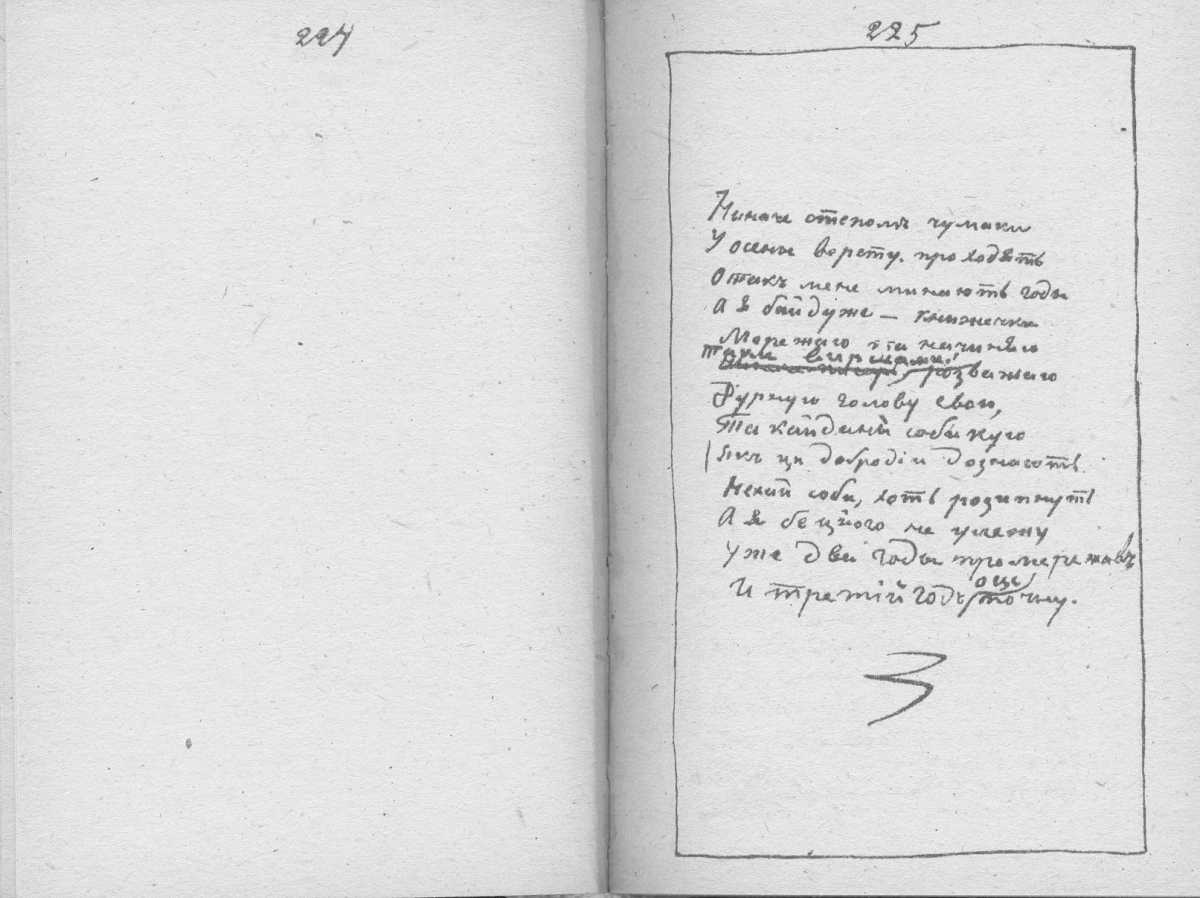 224
225
Ниначе степомъ чумаки
У осены верету. проходять
Отакъ мене минають годы
А я байдуже — книжечки
Мережаю та начиняю
тими виршами!
розважаю
Дурную голову свою,
Та кайданы соби кую
Якъ ци добродіи дознають
Нехай соби, хоть розипнуть
А я безъ його не улежу
Уже два годы промережавъ
оце
И третій годъ почну.
3